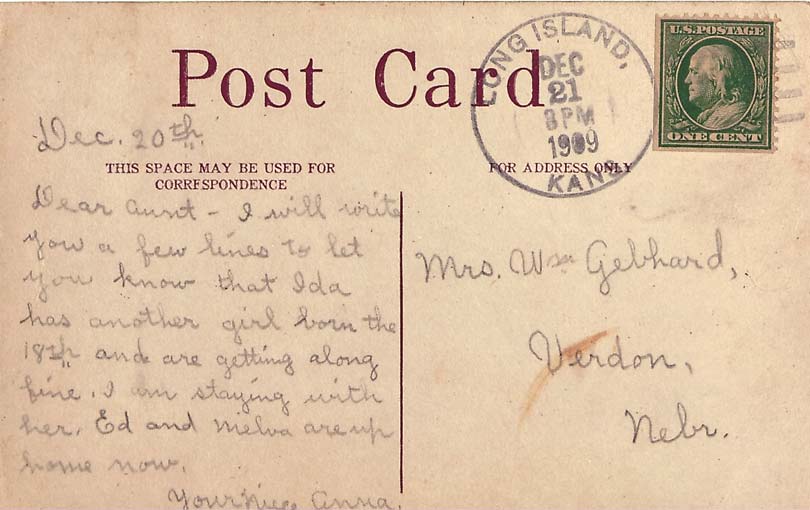 Post Card
LONG ISLAND,
DEC
21
8 PM
1909
KANS
U.S. POSTAGE
ONE CENT
Dec. 20th.
THIS SPACE MAY BE USED FOR
CORRFSPONDENCE
FOR ADDRESS ONLY
Dear Aunt - I will write
you a few lines to let
you know that Ida
has another girl born the
18th and are getting along
fine. I am staying with
her. Ed and Melva are up
home now.
Your Niece Anna.
Mrs. Wm Gebhard,
Verdon,
Nebr.